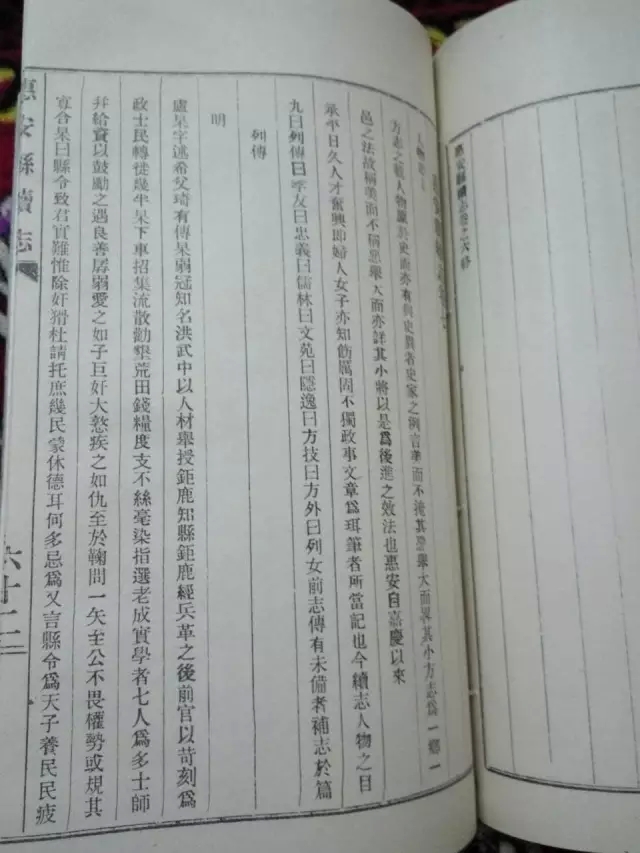 惠安縣續志卷之六終
人物志
方志之載人物屬於史而亦有與史異者史家之例言善而不掩其惡舉大而畧其小方志為一鄉一
邑之法故稱美而不稱惡舉大而亦詳其小將以是為後進之效法也惠安自嘉慶以來
承平日久人才奮興即婦人女子亦知飭厲固不獨政事文章為珥筆者所當記也今續志人物之目
九曰列傳曰孝友曰忠義曰儒林曰文苑曰隱逸曰方技曰方外曰列女前志傳有未備者補志於篇
列傳
明
盧杲字述希父琦有傳杲弱冠知名洪武中以人材舉授鉅鹿知縣鉅鹿經兵革之後前官以苛刻為
政士民轉徙幾半杲下車招集流散勸墾荒田錢糧度支不絲毫染指選老成實學者七人為多士師
幷給資以鼓勵之遇良善孱弱愛之如子巨奸大憝疾之如仇至於鞫問一矢至公不畏權勢或規其
寡合杲曰縣令致君實難惟除奸猾杜請托庶幾民蒙休德耳何多忌為又言縣令為天子養民民疲
惠安縣續志
六十二